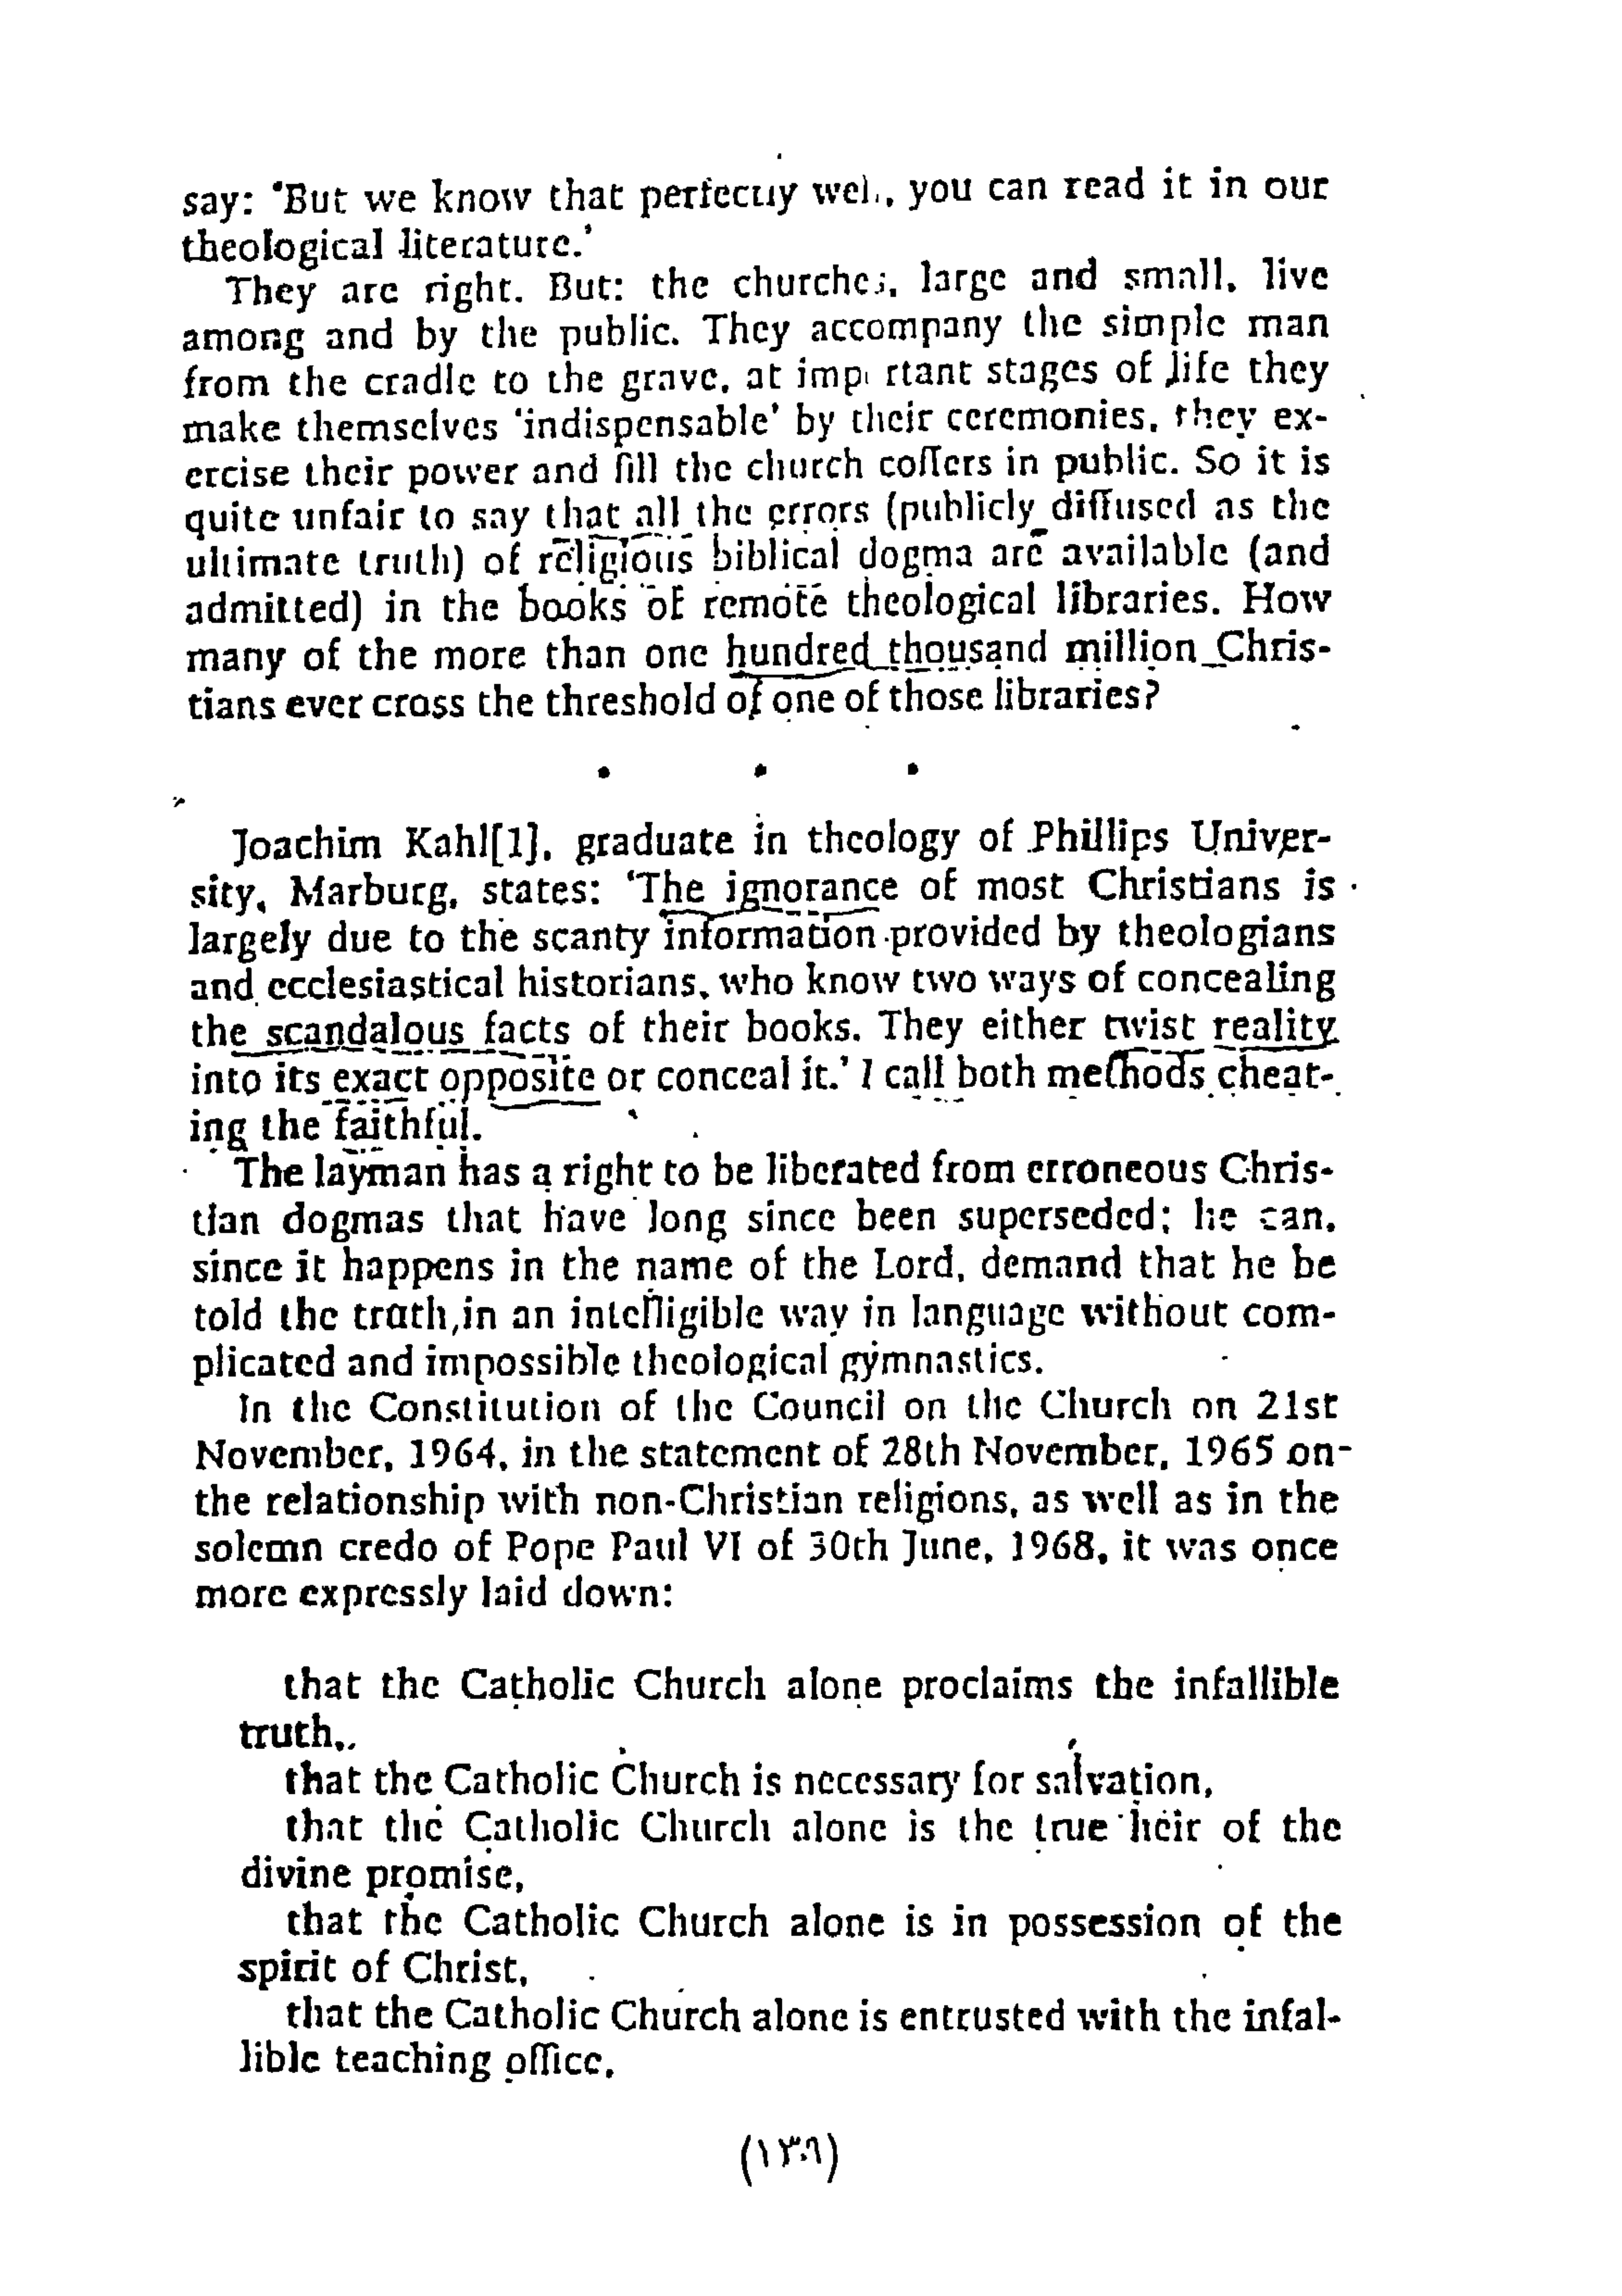 say: 'But we know that perfectly well, you can read it in our
theological literature.'
They are right. But: the churches, large and small, live
among and by the public. They accompany the simple man
from the cradle to the grave, at important stages of life they
make themselves 'indispensable' by their ceremonies, they ex-
ercise their power and fill the church coffers in public. So it is
quite unfair to say that all the errors (publicly diffused as the
ultimate truth) of religious biblical dogma are available (and
admitted) in the books of remote theological libraries. How
many of the more than one hundred thousand million Chris-
tians ever cross the threshold of one of those libraries?
• • •
Joachim Kahl[1], graduate in theology of Phillips Univer-
sity, Marburg, states: 'The ignorance of most Christians is
largely due to the scanty information provided by theologians
and ecclesiastical historians, who know two ways of concealing
the scandalous facts of their books. They either twist reality
into its exact opposite or conceal it.' I call both methods cheat-
ing the faithful.
The layman has a right to be liberated from erroneous Chris-
tian dogmas that have long since been superseded; he can,
since it happens in the name of the Lord, demand that he be
told the truth, in an intelligible way in language without com-
plicated and impossible theological gymnastics.
In the Constitution of the Council on the Church on 21st
November, 1964, in the statement of 28th November, 1965 on
the relationship with non-Christian religions, as well as in the
solemn credo of Pope Paul VI of 30th June, 1968, it was once
more expressly laid down:
that the Catholic Church alone proclaims the infallible
truth,
that the Catholic Church is necessary for salvation,
that the Catholic Church alone is the true heir of the
divine promise,
that the Catholic Church alone is in possession of the
spirit of Christ,
that the Catholic Church alone is entrusted with the infal-
lible teaching office,